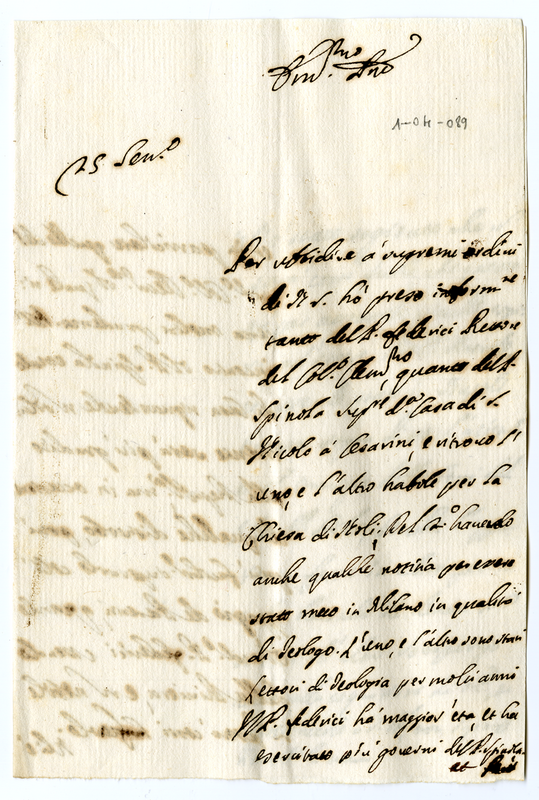 Em.mo Sig.re
1-04-089
25 Gen.o
Per ubbidire á supremi ordini
di N. S. hó preso inform.ne
tanto del P. federici Rettore
del Col.o Clem.no, quanto del P.
Spinola Sup.re d.a Casa di S.
Nicolo á Cesarini, e ritrovo l'
uno, e l'altro habile per la
Chiesa di Noli. Del 2.o havendo
anche qualche notitia per essere
stato meco in Milano in qualitá
di Teologo. L'uno, e l'altro sono stati
Lettori di Teologia per molti anni
Il P. federici há maggior' etá, et ha
esercitato piú governi del P. Spinola
et